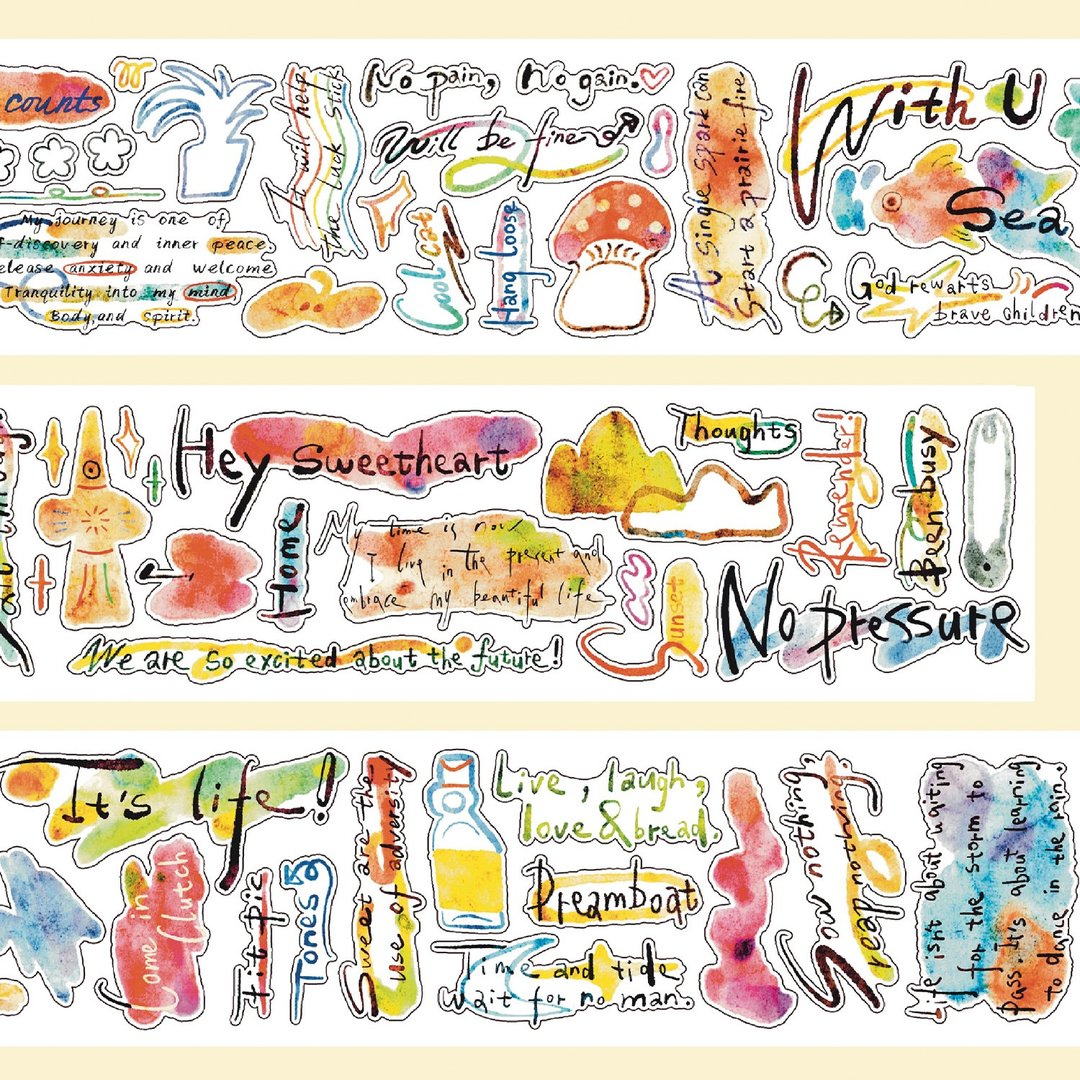 counts
My journey is one of
f-discovery and inner peace.
elease anxiety and welcome
Tranquility into my mind
Body,and spirit.
It will help
The luck stick
No pain, No gain.
Will be fine
Cool cat
Hang Loose
A single spark can
Start a prairie fire
With U
Sea
God rewarts
brave children
Hey Sweetheart
Home
My time is now
I live in the present and
embrace my beautiful life
We are so excited about the future!
Thoughts
Remember!
Been busy
Sunset
No pressure
It's life!
Come in
Clutch
Hit pic
Tones
Sweet are the
Use of adversity
Live, laugh,
love & bread.
Dreamboat
Time and tide
wait for no man.
Sow nothing,
read nothing.
Life isn't about waiting
for the storm to
pass. It's about learning
to dance in the rain.